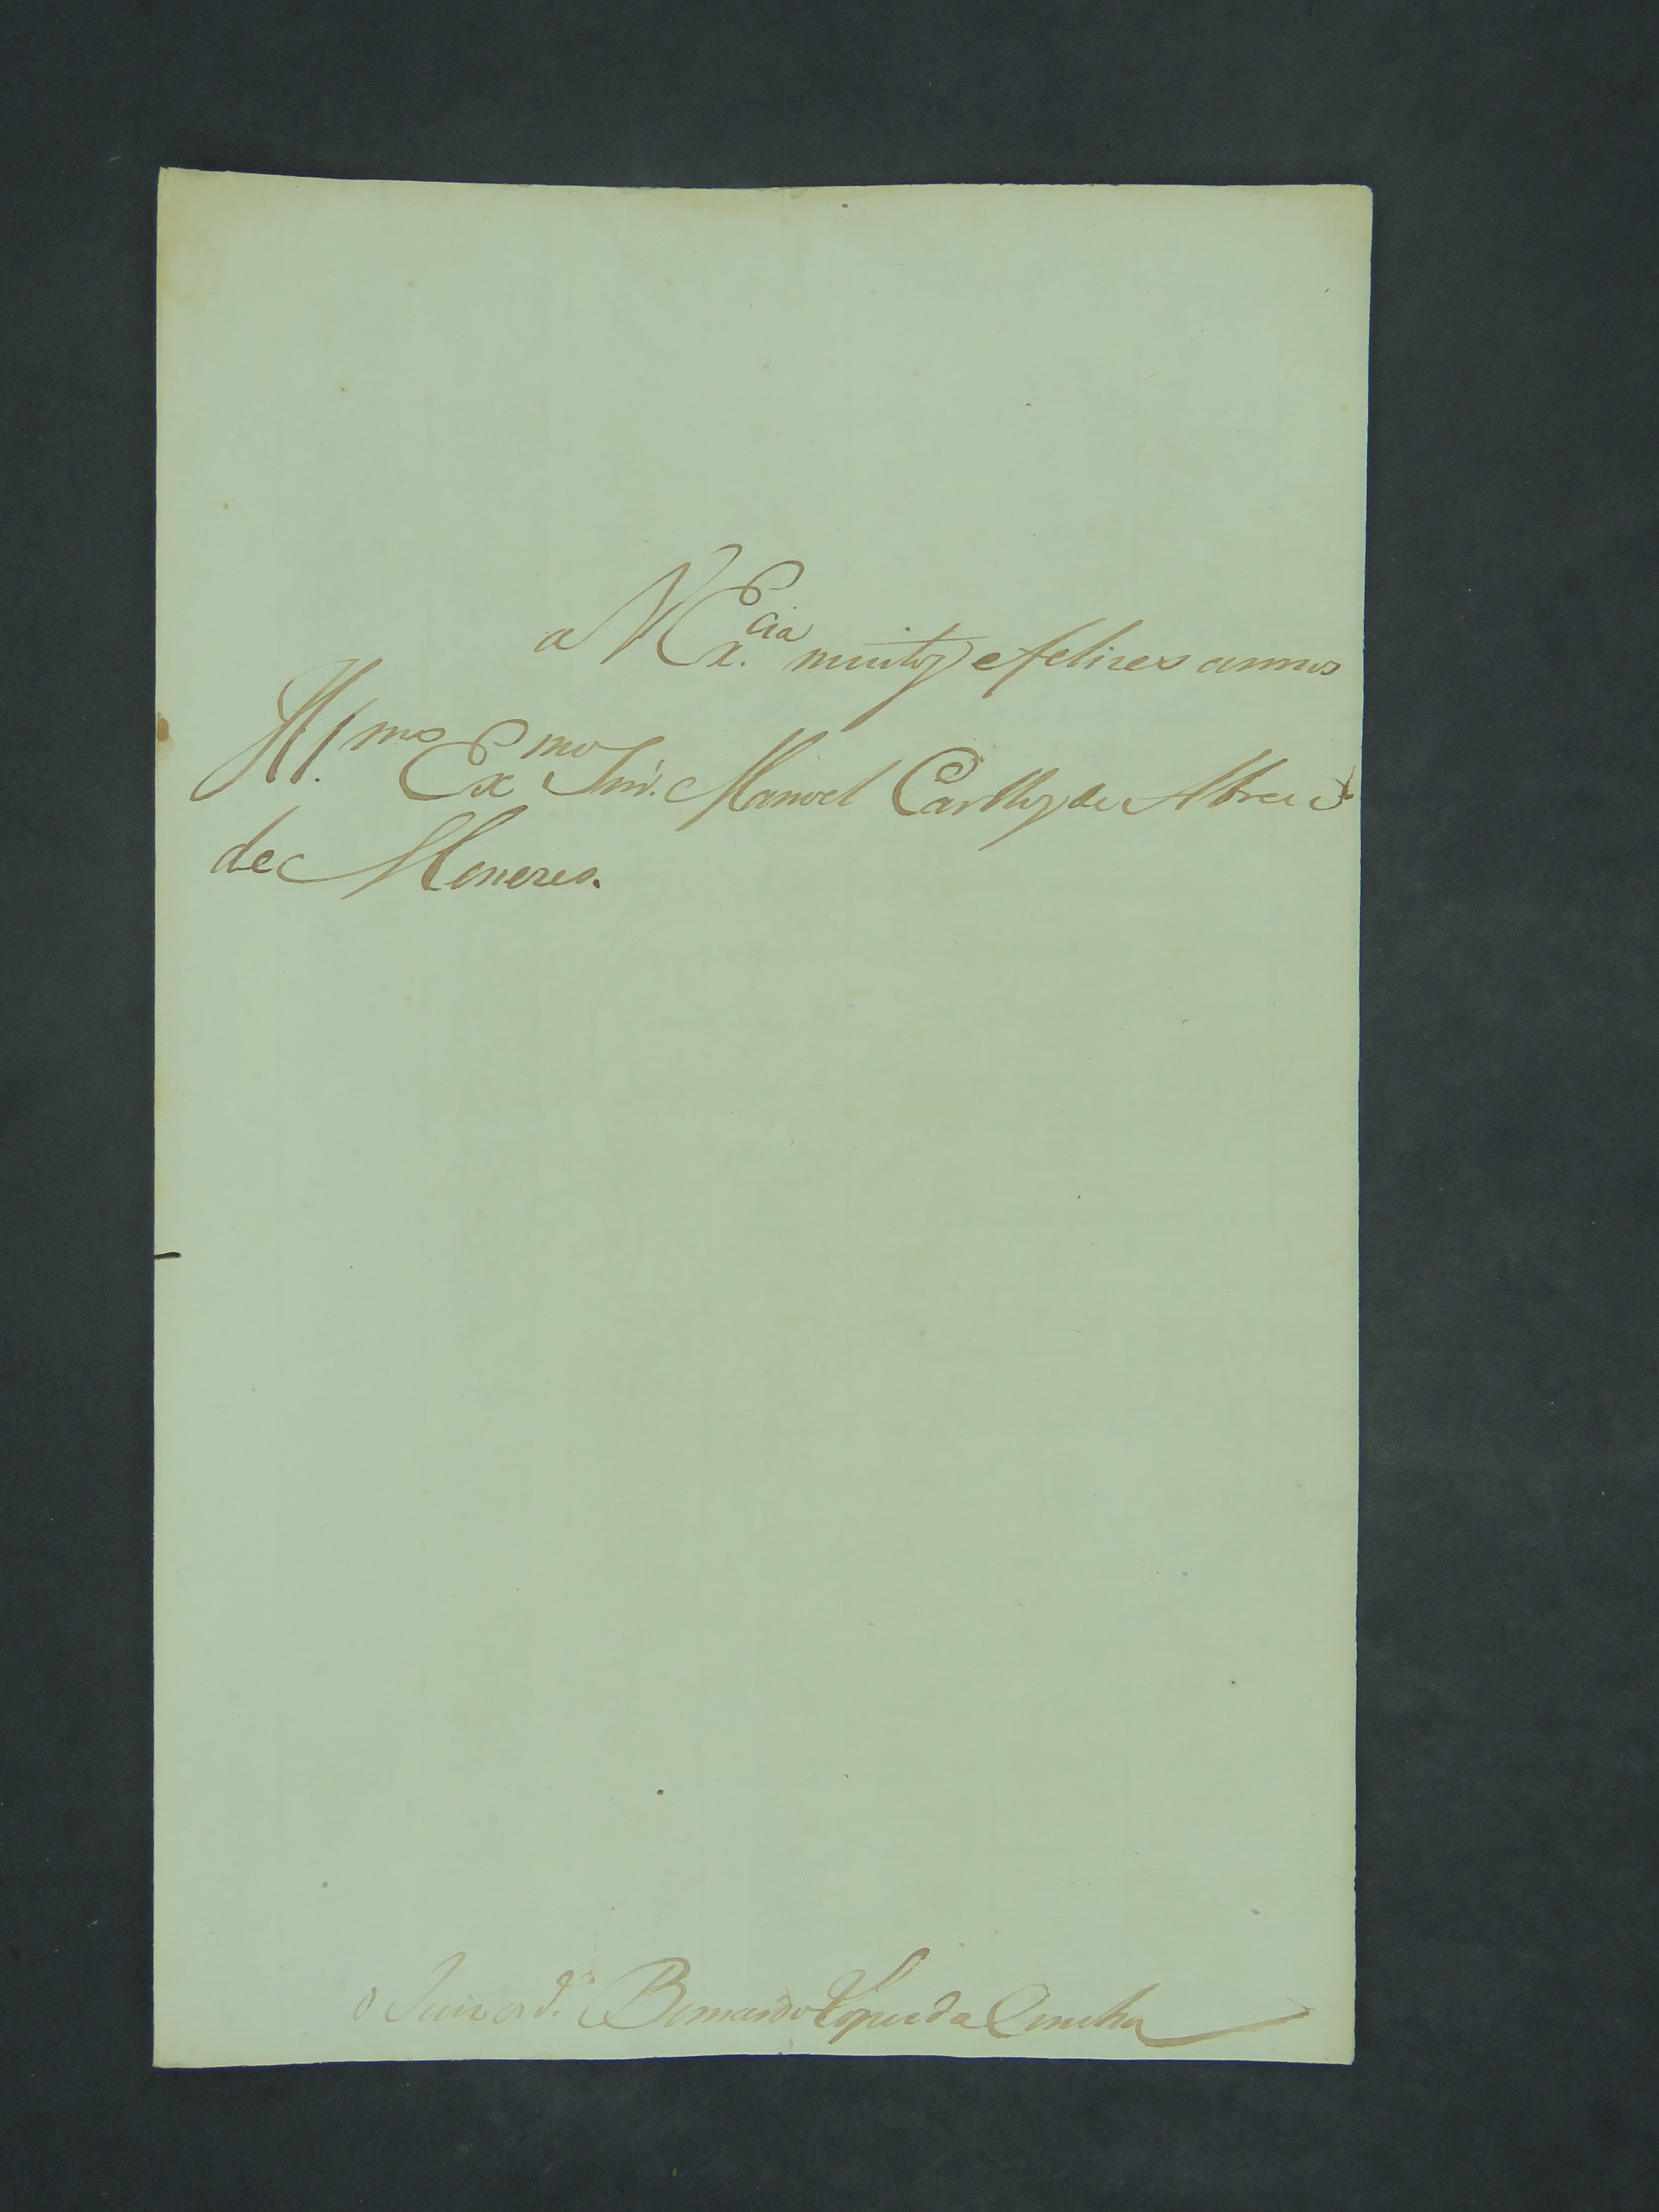 a V Ex.cia muitos e felizes annos
Ill.mo Ex mo Snr. Manoel Carllos de Abreu
de Menezes.
o Juiz ord.o Bernardo Lopes da Cunha